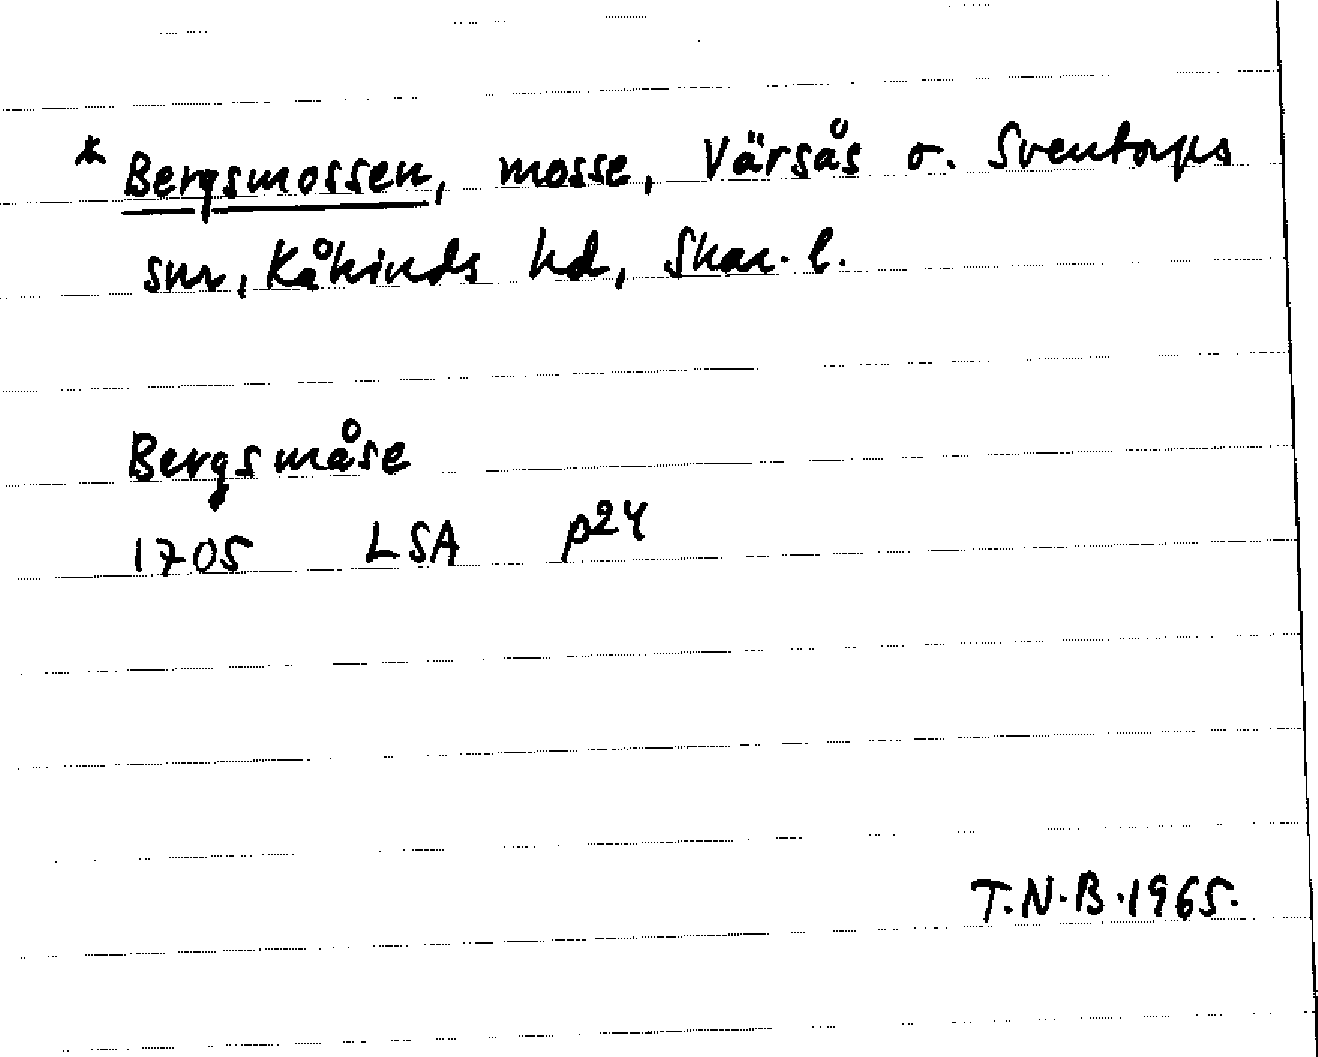 * Bergsmossen, mosse, Värsås o. Sventorps
snr, Kåkinds hd, Skar. l.
Bergsmåse
1705 LSA p24
T.N.B. 1965.